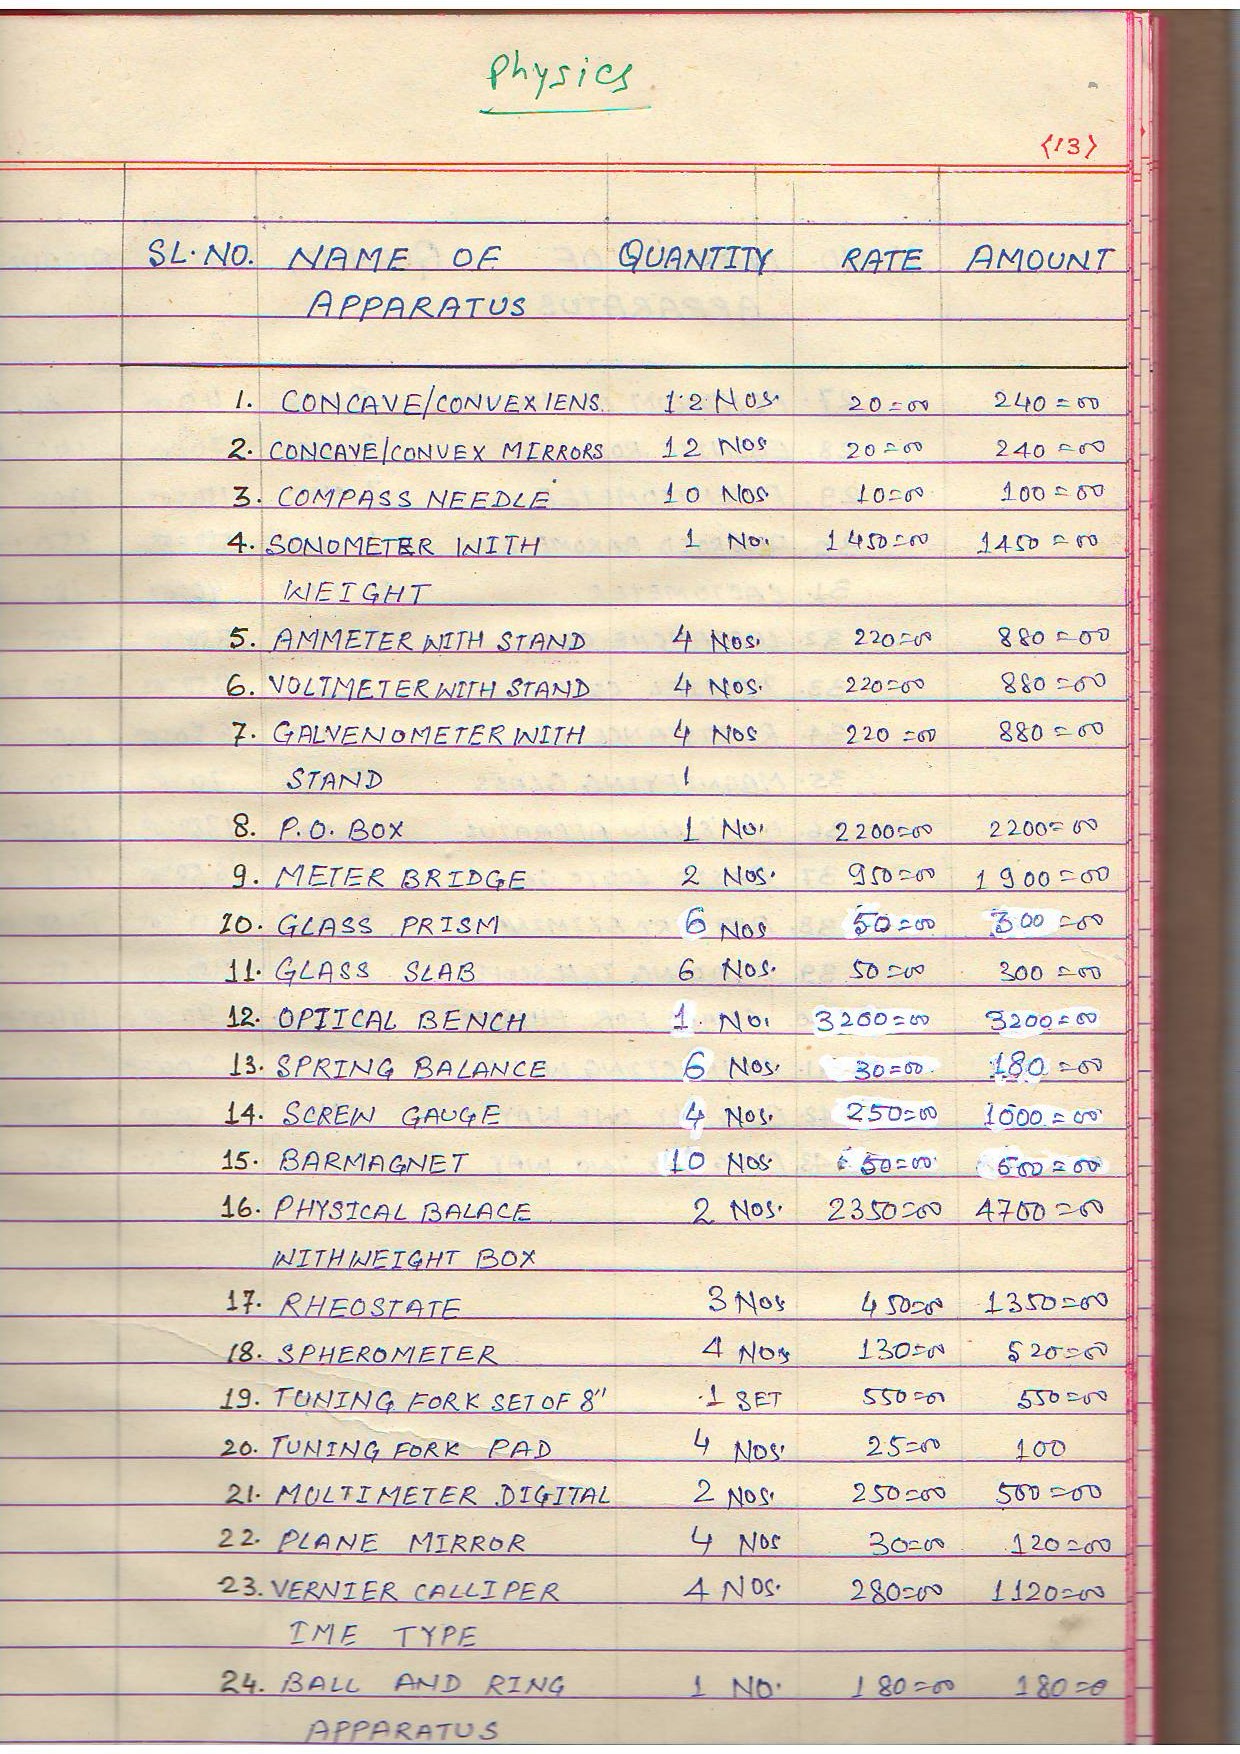 Physics
(13)
SL.NO. NAME OF QUANTITY RATE AMOUNT
APPARATUS
1. CONCAVE/CONVEX lENS. 12 NOS. 20=00 240=00
2. CONCAVE/CONVEX MIRRORS 12 NOS 20=00 240=00
3. COMPASS NEEDLE 10 NOS 10=00 100=00
4. SONOMETER WITH 1 NO. 1450=00 1450=00
WEIGHT
5. AMMETER WITH STAND 4 NOS. 220=00 880=00
6. VOLTMETER WITH STAND 4 NOS. 220=00 880=00
7. GALVENOMETER WITH 4 NOS 220=00 880=00
STAND
8. P.O. BOX 1 NO. 2200=00 2200=00
9. METER BRIDGE 2 NOS. 950=00 1900=00
10. GLASS PRISM 6 NOS 50=00 300=00
11. GLASS SLAB 6 NOS. 50=00 300=00
12. OPTICAL BENCH 1 NO. 3200=00 3200=00
13. SPRING BALANCE 6 NOS. 30=00 180=00
14. SCREW GAUGE 4 NOS. 250=00 1000=00
15. BARMAGNET 10 NOS 50=00
16. PHYSICAL BALACE 2 NOS. 2350=00 4700=00
WITH WEIGHT BOX
17. RHEOSTATE 3 NOS 450=00 1350=00
18. SPHEROMETER 4 NOS 130=00 520=00
19. TUNING FORK SET OF 8" 1 SET 550=00 550=00
20. TUNING FORK PAD 4 NOS. 25=00 100
21. MULTIMETER DIGITAL 2 NOS. 250=00 500=00
22. PLANE MIRROR 4 NOS 30=00 120=00
23. VERNIER CALLIPER 4 NOS. 280=00 1120=00
IME TYPE
24. BALL AND RING 1 NO. 180=00 180=0
APPARATUS